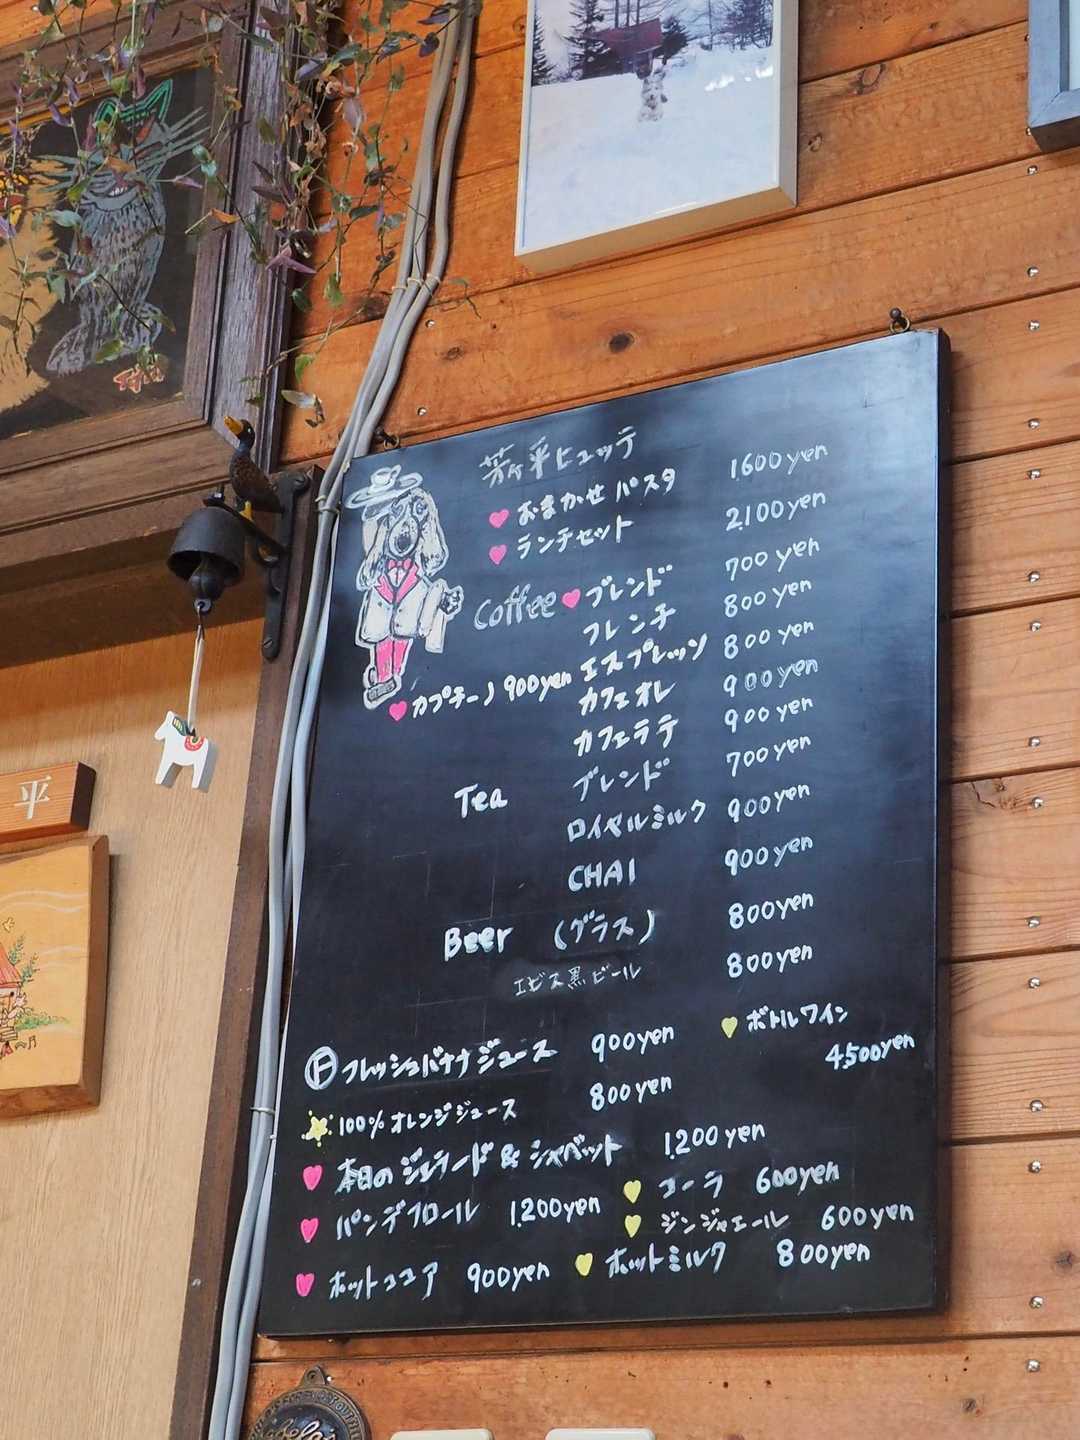 芳ヶ平ヒュッテ
おまかせパスタ 1.600yen
ランチセット 2.100yen
Coffee ブレンド 700yen
フレンチ 800yen
エスプレッソ 800yen
カプチーノ 900yen
カフェオレ 900yen
カフェラテ 900yen
Tea ブレンド 700yen
ロイヤルミルク 900yen
CHAI 900yen
Beer (グラス) 800yen
エビス黒ビール 800yen
Ⓕフレッシュバナナジュース 900yen
ボトルワイン
4.500yen
100%オレンジジュース 800yen
本日のジェラード&シャーベット 1.200yen
コーラ 600yen
パンデフロール 1.200yen
ジンジャエール 600yen
ホットココア 900yen
ホットミルク 800yen
平